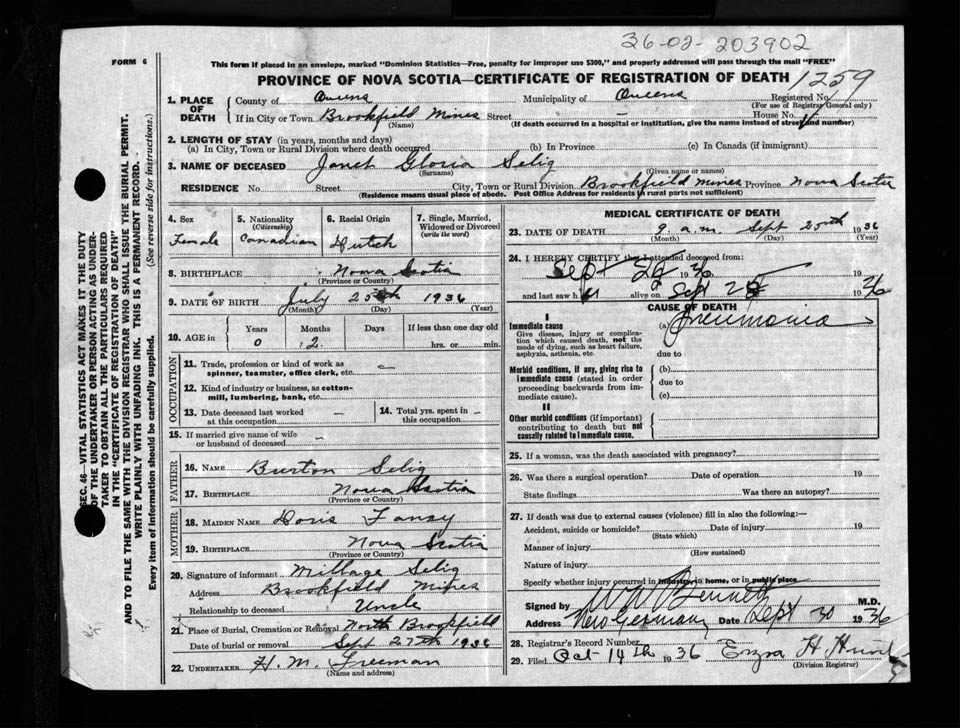 36-02-203902
FORM 6
This form if placed in an envelope, marked "Dominion Statistics—Free, penalty for improper use $300," and properly addressed will pass through the mail "FREE"
PROVINCE OF NOVA SCOTIA—CERTIFICATE OF REGISTRATION OF DEATH 1259
1. PLACE OF DEATH County of Queens Municipality of Queens Registered No.
(For use of Registrar General only)
If in City or Town Brookfield Mines Street House No.
(Name) (If death occurred in a hospital or institution, give the name instead of street and number)
2. LENGTH OF STAY (in years, months and days)
(a) In City, Town or Rural Division where death occurred (b) In Province (c) In Canada (if immigrant)
3. NAME OF DECEASED Janet Gloria Selig
(Surname) (Given name or names)
RESIDENCE No. Street City, Town or Rural Division Brookfield Mines Province Nova Scotia
(Residence means usual place of abode. Post Office Address for residents in rural parts not sufficient)
4. Sex 5. Nationality (Citizenship) 6. Racial Origin 7. Single, Married, Widowed or Divorced (write the word)
Female Canadian Dutch
8. BIRTHPLACE Nova Scotia
(Province or Country)
9. DATE OF BIRTH July 25th 1936
(Month) (Day) (Year)
10. AGE in Years Months Days If less than one day old
0 2 hrs. or min.
OCCUPATION
11. Trade, profession or kind of work as spinner, teamster, office clerk, etc.
12. Kind of industry or business, as cotton-mill, lumbering, bank, etc.
13. Date deceased last worked at this occupation — 14. Total yrs. spent in this occupation —
15. If married give name of wife or husband of deceased —
FATHER
16. NAME Burton Selig
17. BIRTHPLACE Nova Scotia
(Province or Country)
MOTHER
18. MAIDEN NAME Doris Fancy
19. BIRTHPLACE Nova Scotia
(Province or Country)
20. Signature of informant Millage Selig
Address Brookfield Mines
Relationship to deceased Uncle
21. Place of Burial, Cremation or Removal North Brookfield
Date of burial or removal Sept 27th 1936
22. UNDERTAKER H. M. Freeman
(Name and address)
MEDICAL CERTIFICATE OF DEATH
23. DATE OF DEATH 9 a.m. Sept 25th 1936
(Month) (Day) (Year)
24. I HEREBY CERTIFY that I attended deceased from:
Sept 1936
and last saw h alive on Sept 1936
CAUSE OF DEATH
I
Immediate cause (a) Pneumonia
Give disease, injury or complication which caused death, not the mode of dying, such as heart failure, asphyxia, asthenia, etc.
due to
Morbid conditions, if any, giving rise to immediate cause (stated in order proceeding backwards from immediate cause).
(b)
due to
(c)
II
Other morbid conditions (if important) contributing to death but not causally related to immediate cause.
25. If a woman, was the death associated with pregnancy?
26. Was there a surgical operation? Date of operation 19
State findings Was there an autopsy?
27. If death was due to external causes (violence) fill in also the following:—
Accident, suicide or homicide? Date of injury 19
(State which)
Manner of injury
(How sustained)
Nature of injury
Specify whether injury occurred in industry, in home, or in public place
Signed by W W Bennett M.D.
Address New Germany Date Sept 30 1936
28. Registrar's Record Number
29. Filed Oct 14th 1936 Ezra H Hunt
(Division Registrar)
SEC. 46—VITAL STATISTICS ACT MAKES IT THE DUTY
OF THE UNDERTAKER OR PERSON ACTING AS UNDER-
TAKER TO OBTAIN ALL THE PARTICULARS REQUIRED
IN THE "CERTIFICATE OF REGISTRATION OF DEATH"
AND TO FILE THE SAME WITH THE DIVISION REGISTRAR WHO SHALL ISSUE THE BURIAL PERMIT.
WRITE PLAINLY WITH UNFADING INK. THIS IS A PERMANENT RECORD.
Every item of information should be carefully supplied. (See reverse side for instructions.)